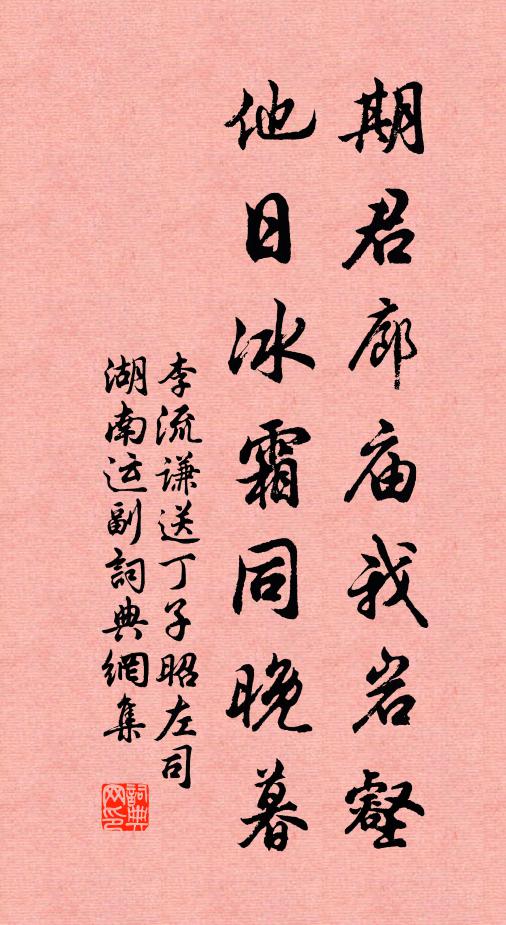 期君廊庙我岩壑
他日冰霜同晚暮
李流谦送丁子昭左司
湖南运副詞典網集
詞典
网印